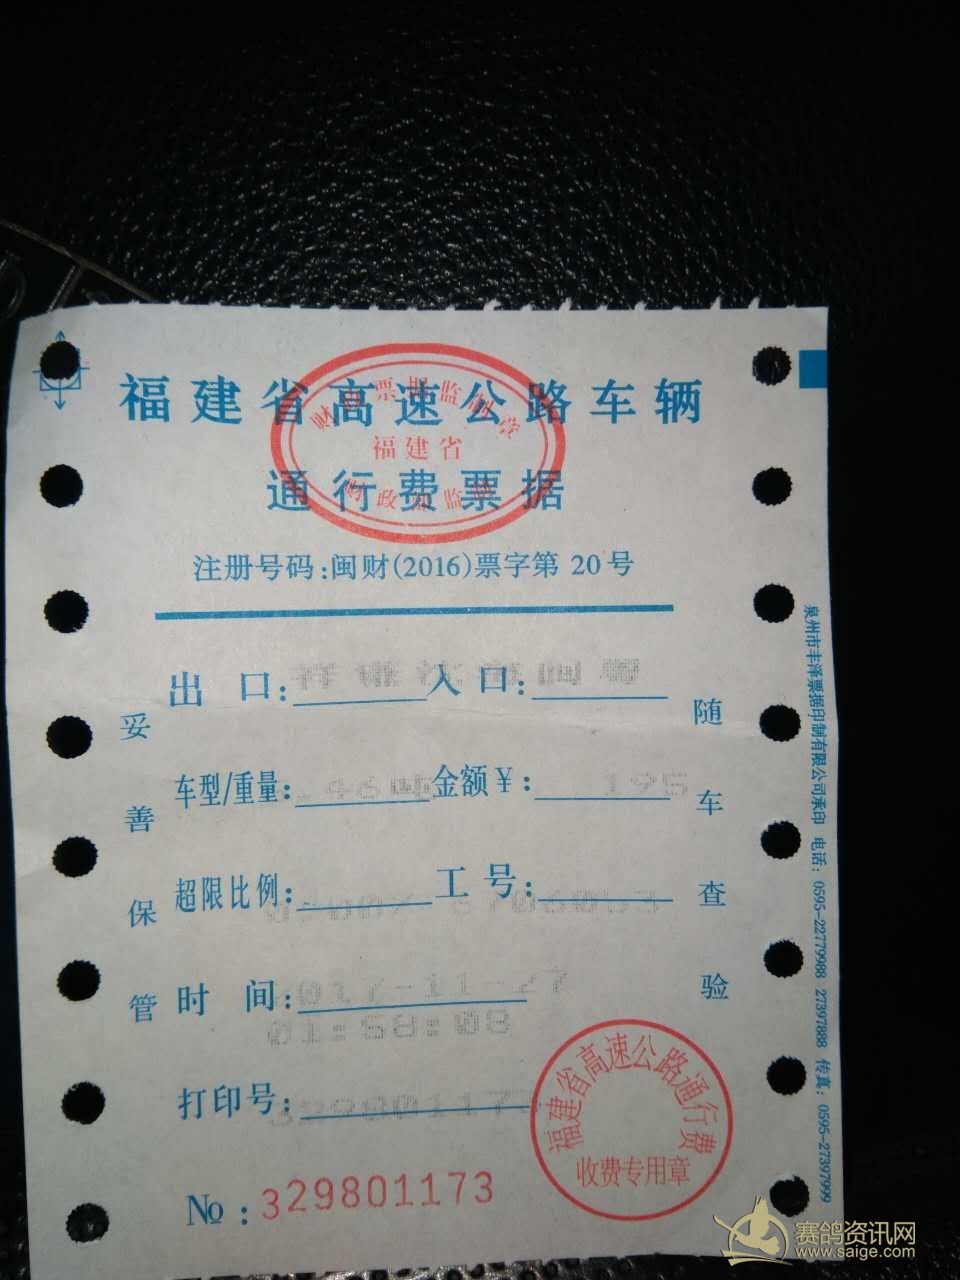 福建省高速公路车辆
通行费票据
福建省
注册号码:闽财(2016)票字第 20号
出 口: 入 口:
车型/重量: 金额￥: 195
超限比例: 工 号:
时 间: 2017-11-27
01:58:08
打印号:
№ : 329801173
妥善保管
随车查验
福建省高速公路通行费
收费专用章
泉州市丰泽票据印制有限公司承印 电话: 0595-22779988 27397888 传真: 0595-27397999
赛鸽资讯网
www.saige.com